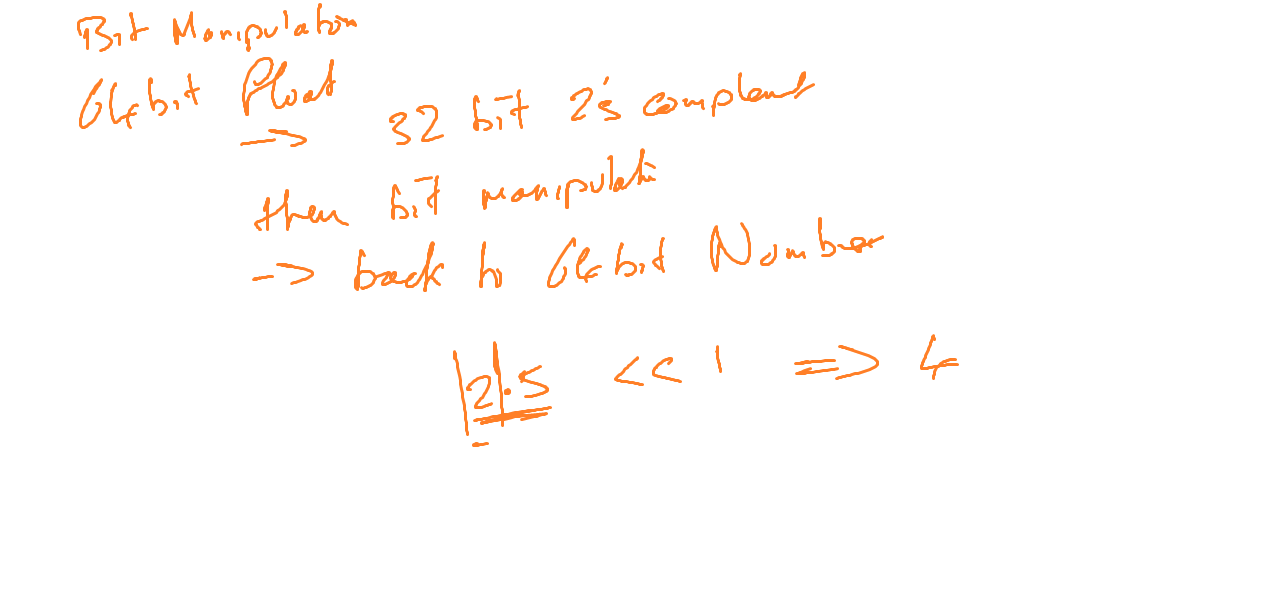 Bit Manipulation
64 bit Float
→ 32 bit 2's complent
then bit manipulati
→ back to 64 bit Number
|2|.5 << 1 => 4